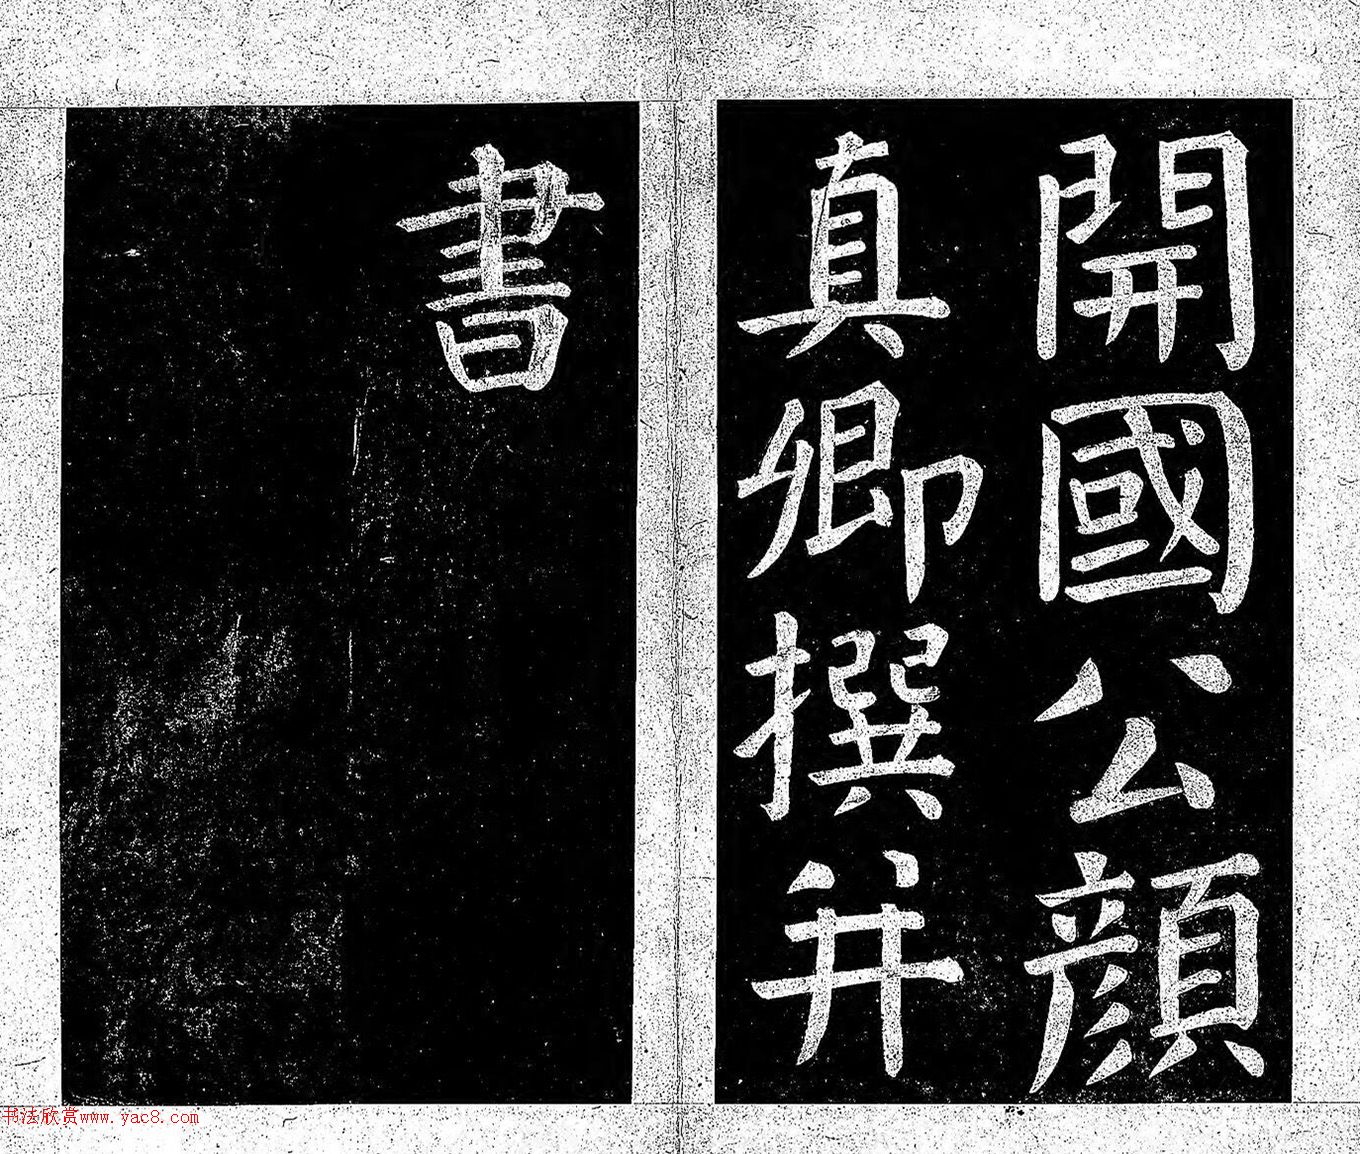 開國公顔
真卿撰并
書
书法欣赏www.yac8.com